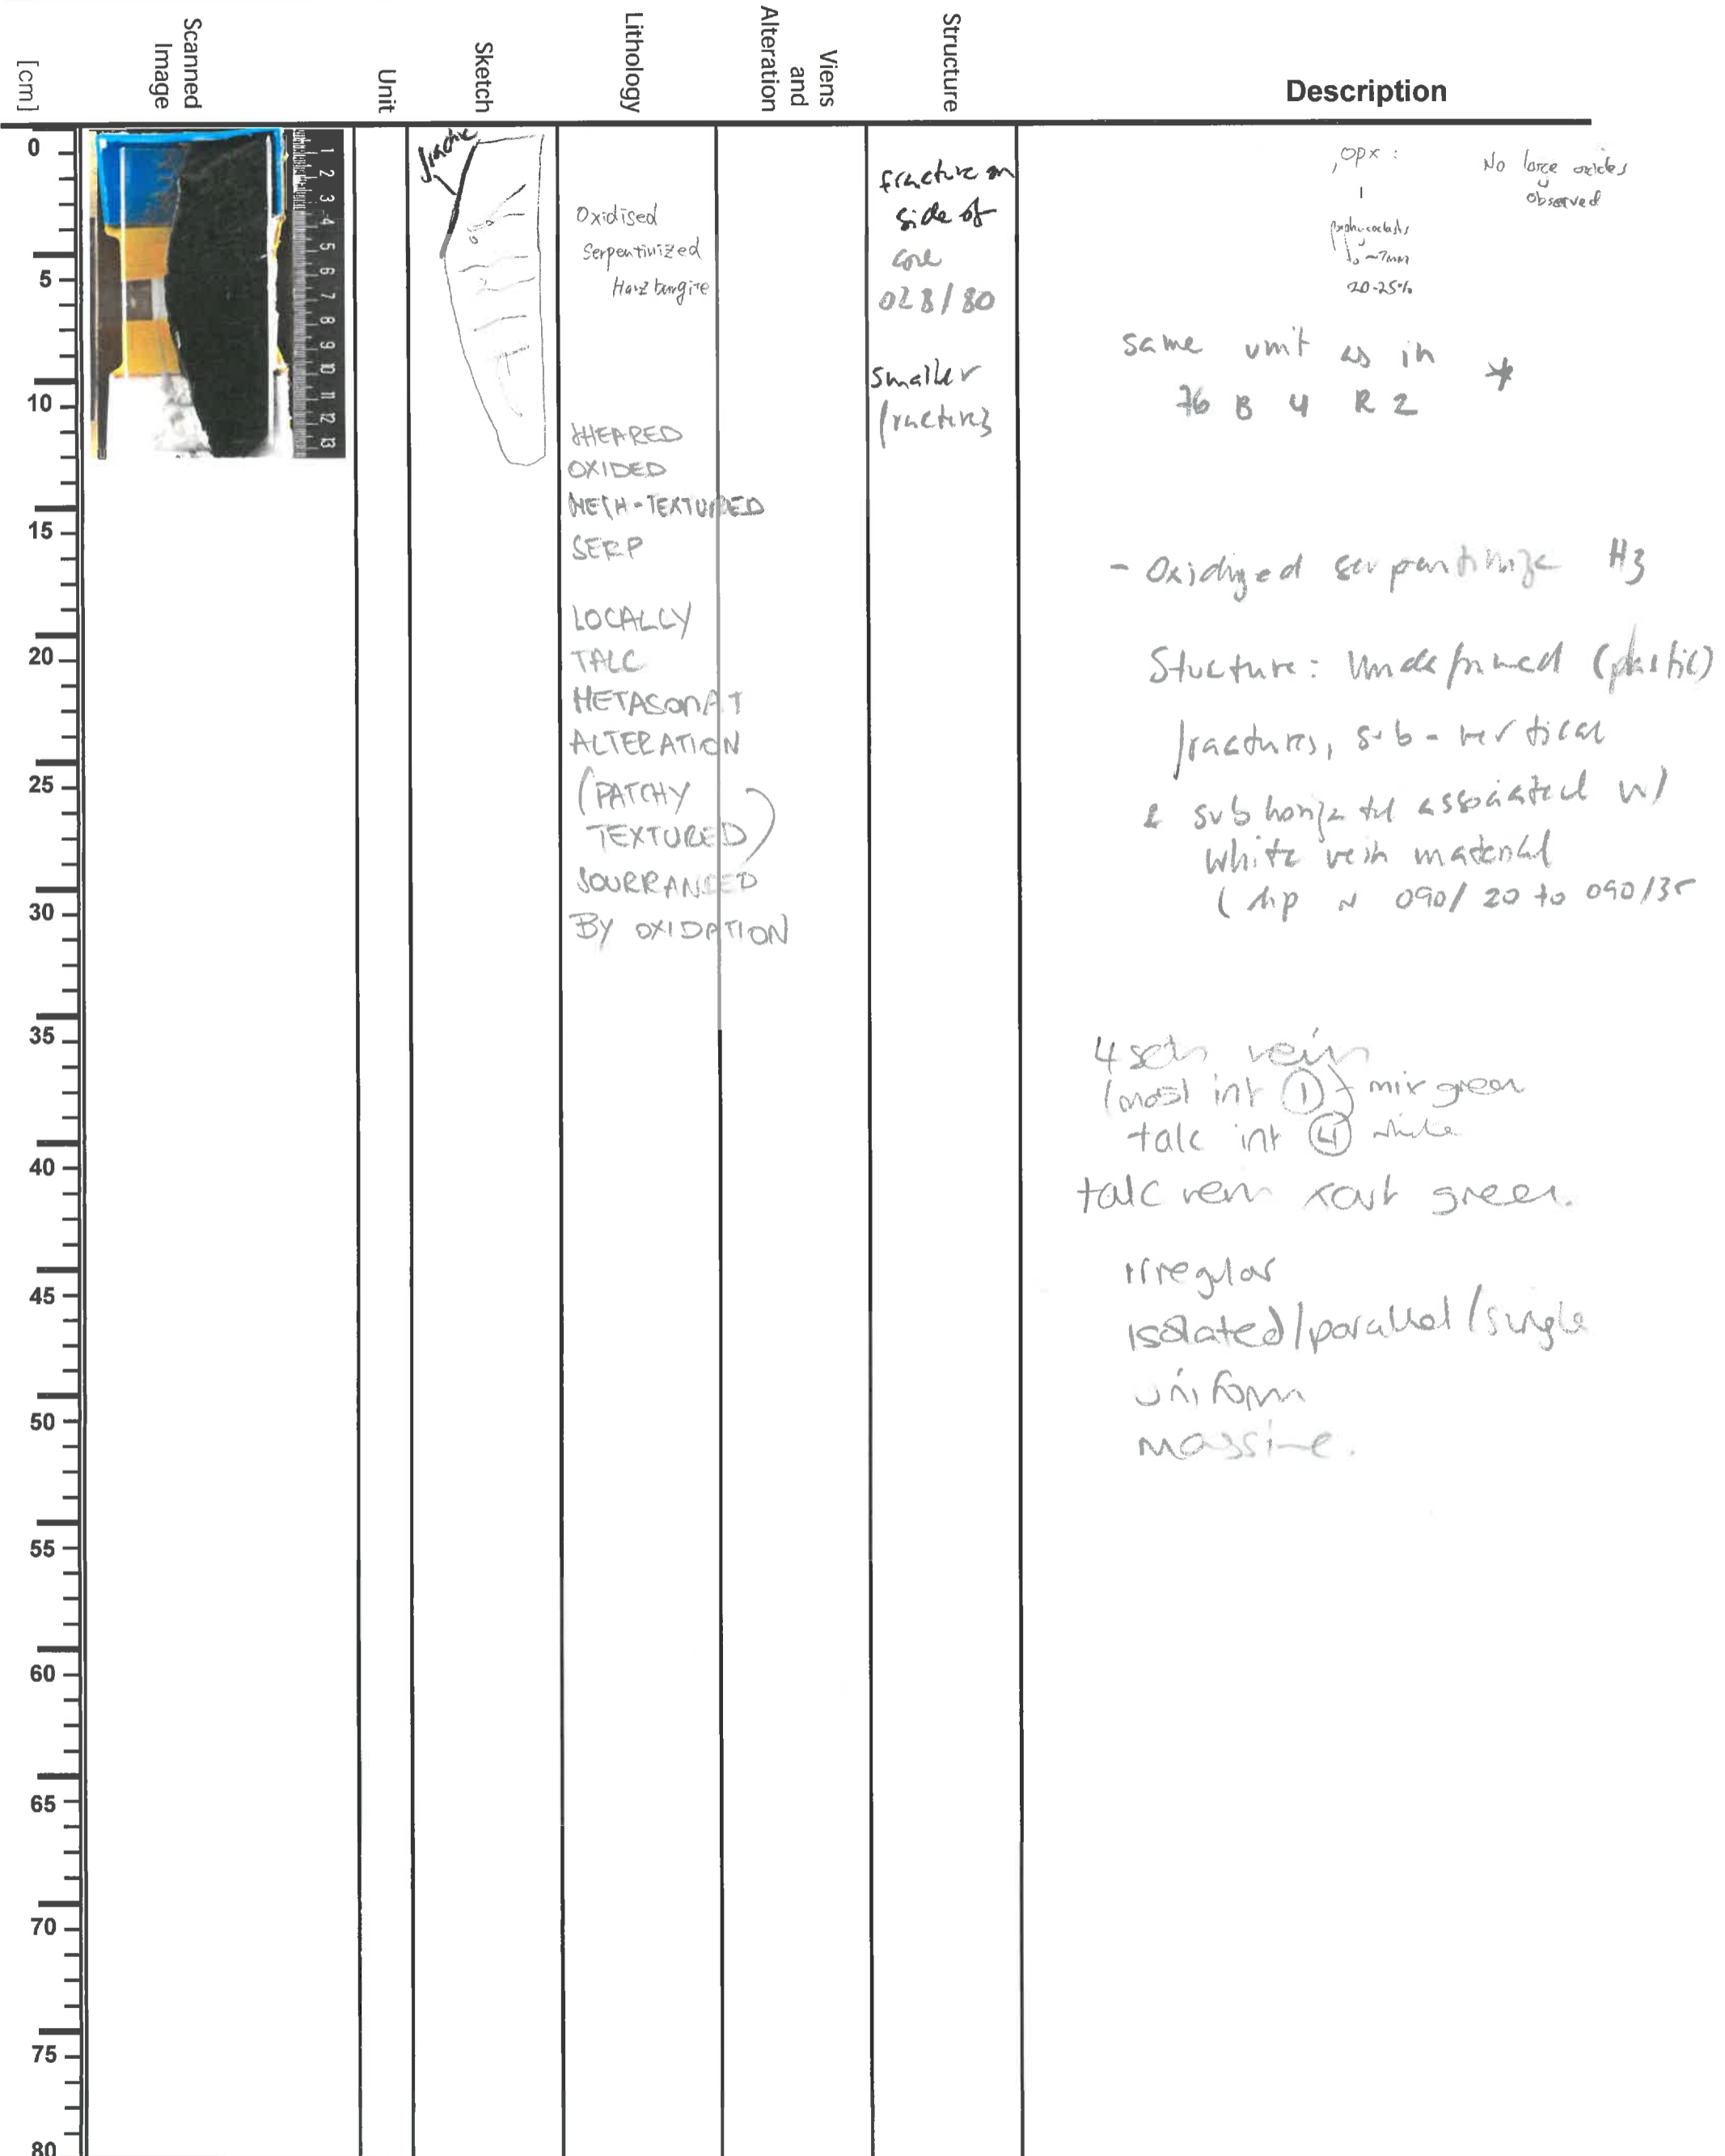 [cm]
Scanned
Image
Unit
Sketch
Lithology
Viens
and
Alteration
Structure
Description
0
5
10
15
20
25
30
35
40
45
50
55
60
65
70
75
80
1 2 3 4 5 6 7 8 9 10 11 12 13
Oxidised
Serpentinized
Harzburgite
SHEARED
OXIDED
MESH-TEXTURED
SERP
LOCALLY
TALC
METASOMAT
ALTERATION
(PATCHY
TEXTURED)
SOURRANDED
BY OXIDATION
fracture on
side of
core
028/80
smaller
fractures
opx :
~7mm
20-25%
No large oxides
observed
same unit as in
76 B 4 R 2 *
- Oxidized serpentinize Hz
Stucture: Undeformed (plastic)
fractures, sub-vertical
& subhorizontal associated w/
white vein material
(dip ~ 090/20 to 090/35
4 sets vein
(most int ①) mix green
talc int ④ white
talc vein xcut green.
Irregular
Isolated/parallel/single
uniform
massive.